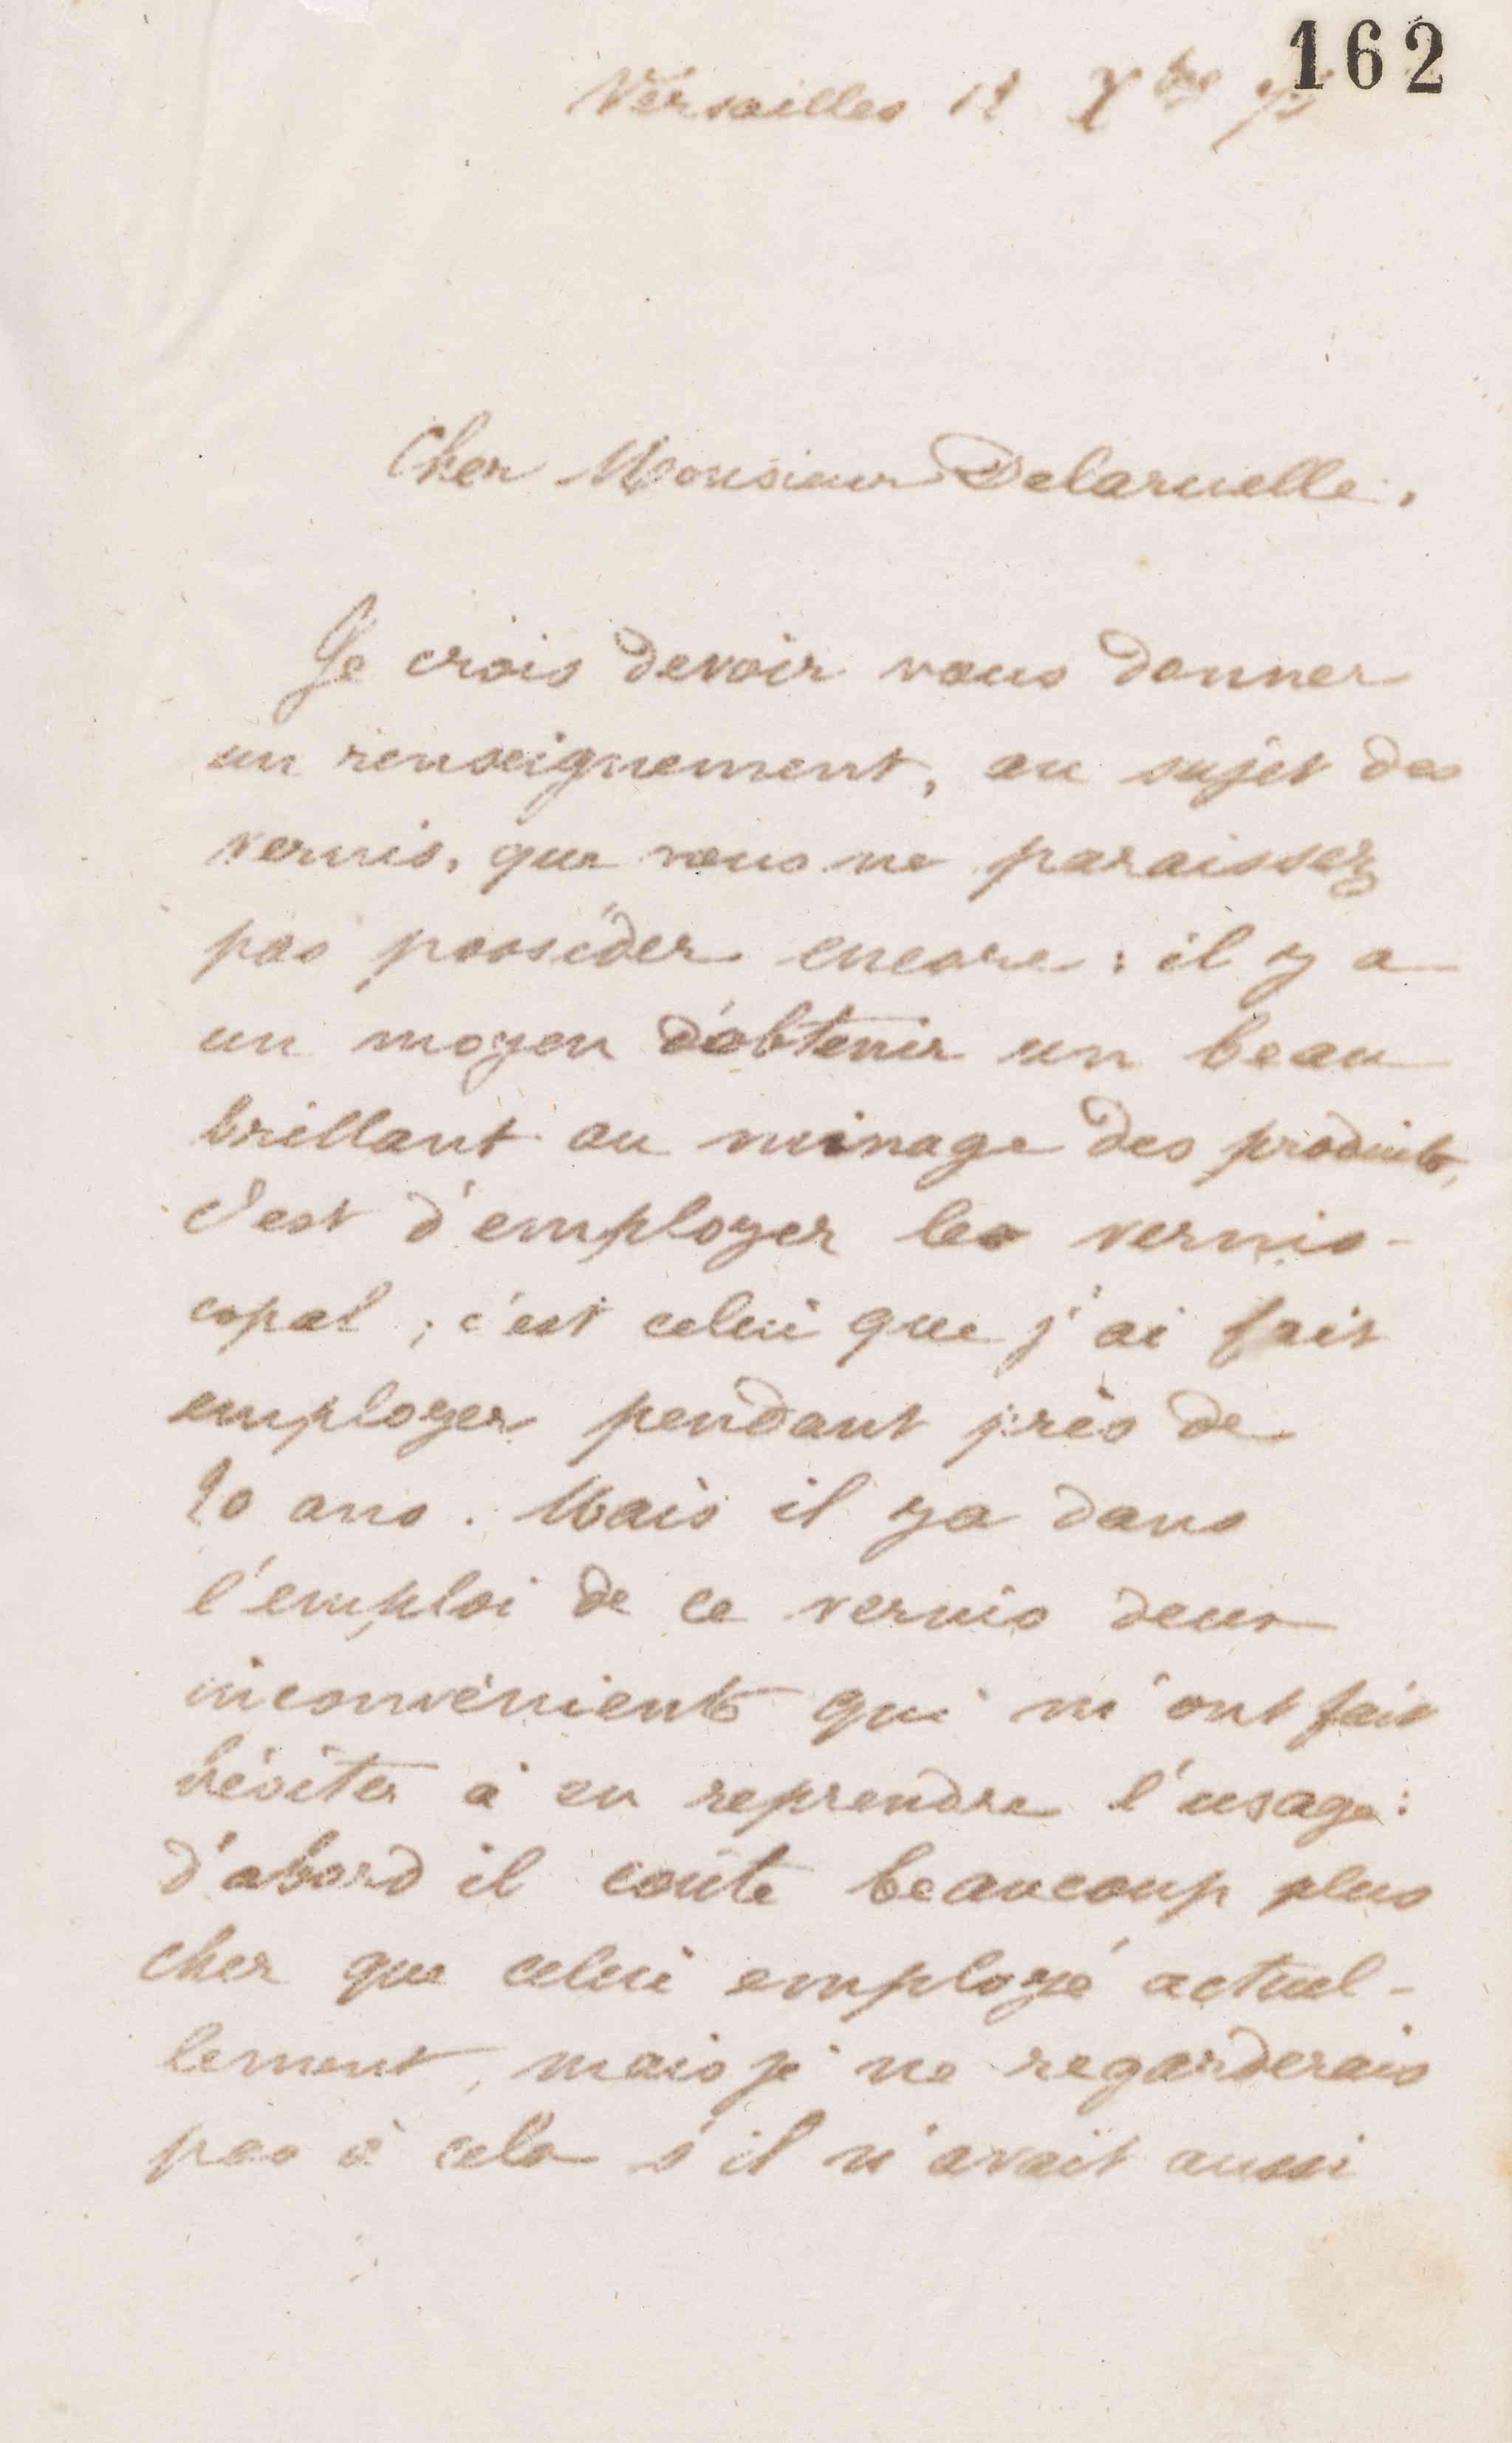 162
Versailles 12 Xbre 75
Cher Monsieur Delaruelle,
Je crois devoir vous donner
un renseignement, au sujet des
vernis, que vous ne paraissez
pas posséder encore : il y a
un moyen d'obtenir un beau
brillant au minage des produits,
c'est d'employer les vernis-
copal ; c'est celui que j'ai fait
employer pendant près de
20 ans. Mais il y a dans
l'emploi de ce vernis deux
inconvénients qui m'ont fait
hésiter à en reprendre l'usage :
d'abord il coûte beaucoup plus
cher que celui employé actuel-
lement, mais je ne regarderais
pas à cela s'il n'avait aussi